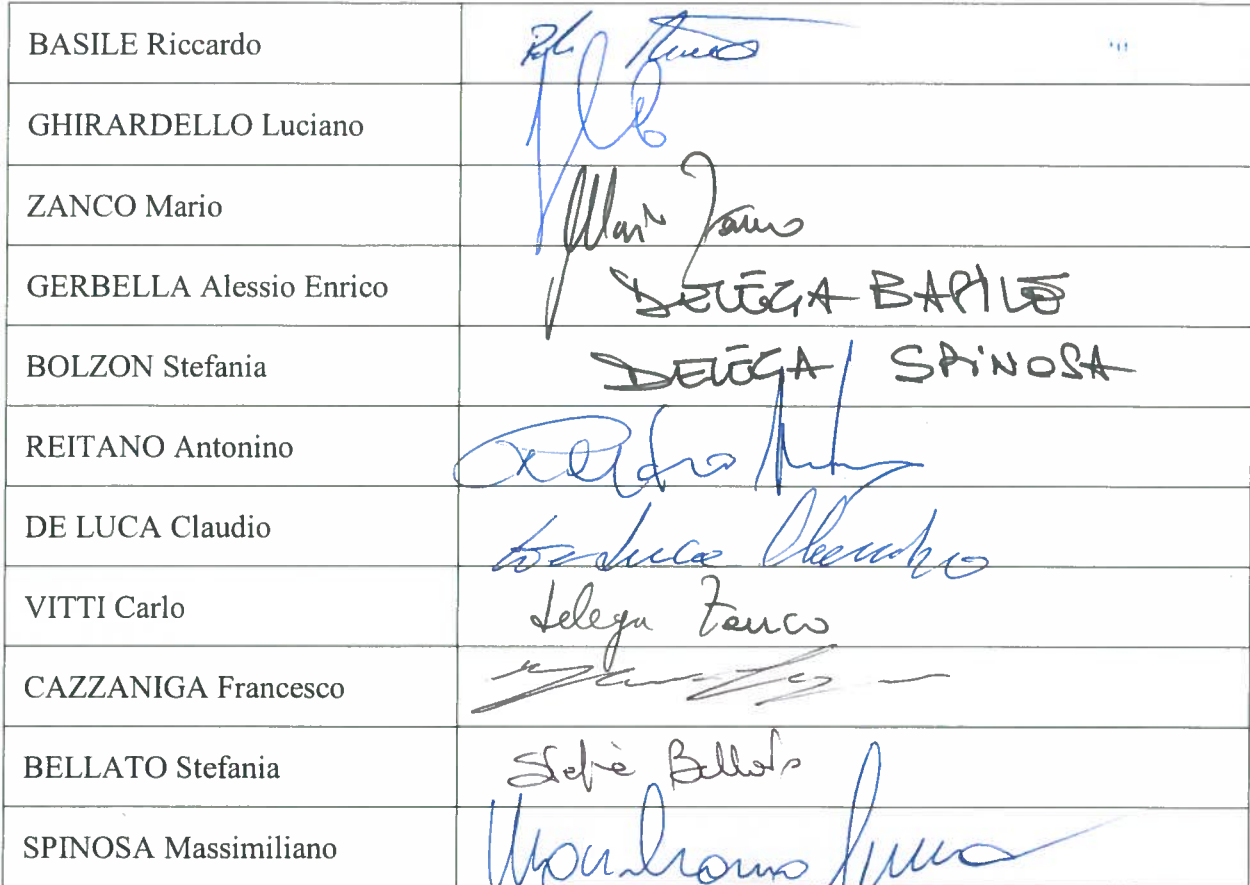 BASILE Riccardo
GHIRARDELLO Luciano
ZANCO Mario Mario Zanco
GERBELLA Alessio Enrico DELEGA BASILE
BOLZON Stefania DELEGA SPINOSA
REITANO Antonino
DE LUCA Claudio De Luca Claudio
VITTI Carlo delega Zanco
CAZZANIGA Francesco
BELLATO Stefania Stefania Bellato
SPINOSA Massimiliano